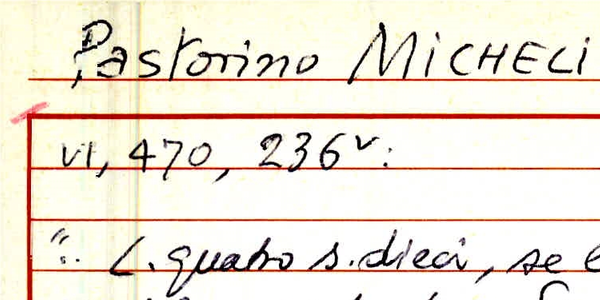 Pastorino MICHELI
VI, 470, 236v:
". L. quatro s. dieci, se